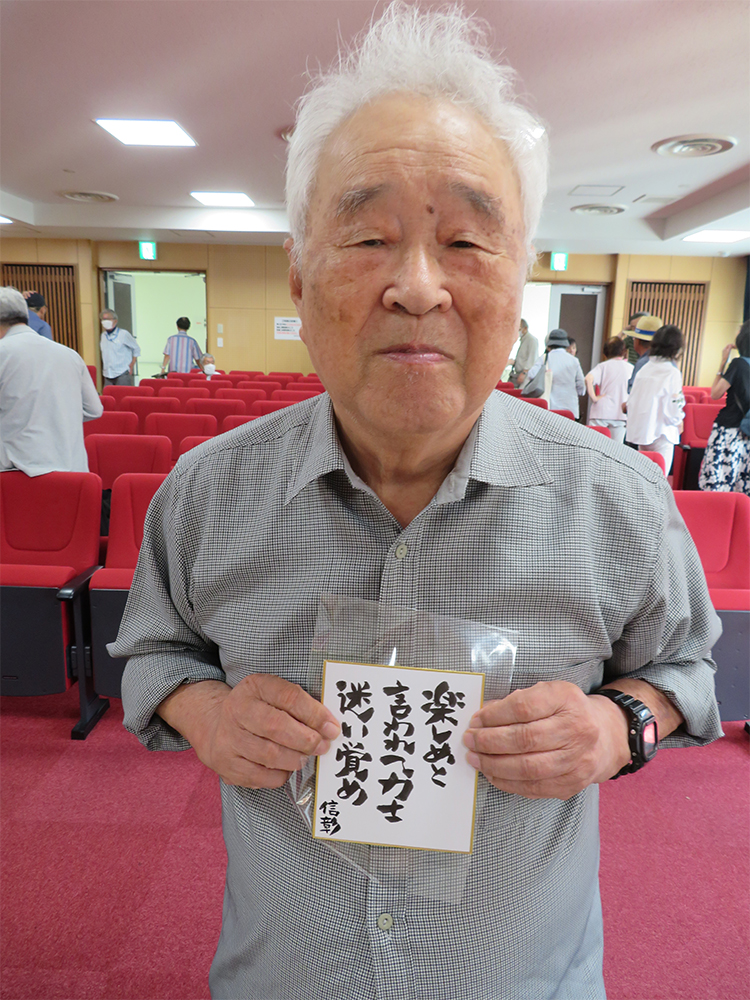 楽しめと
言われ入力士
迷い覚め
信彰